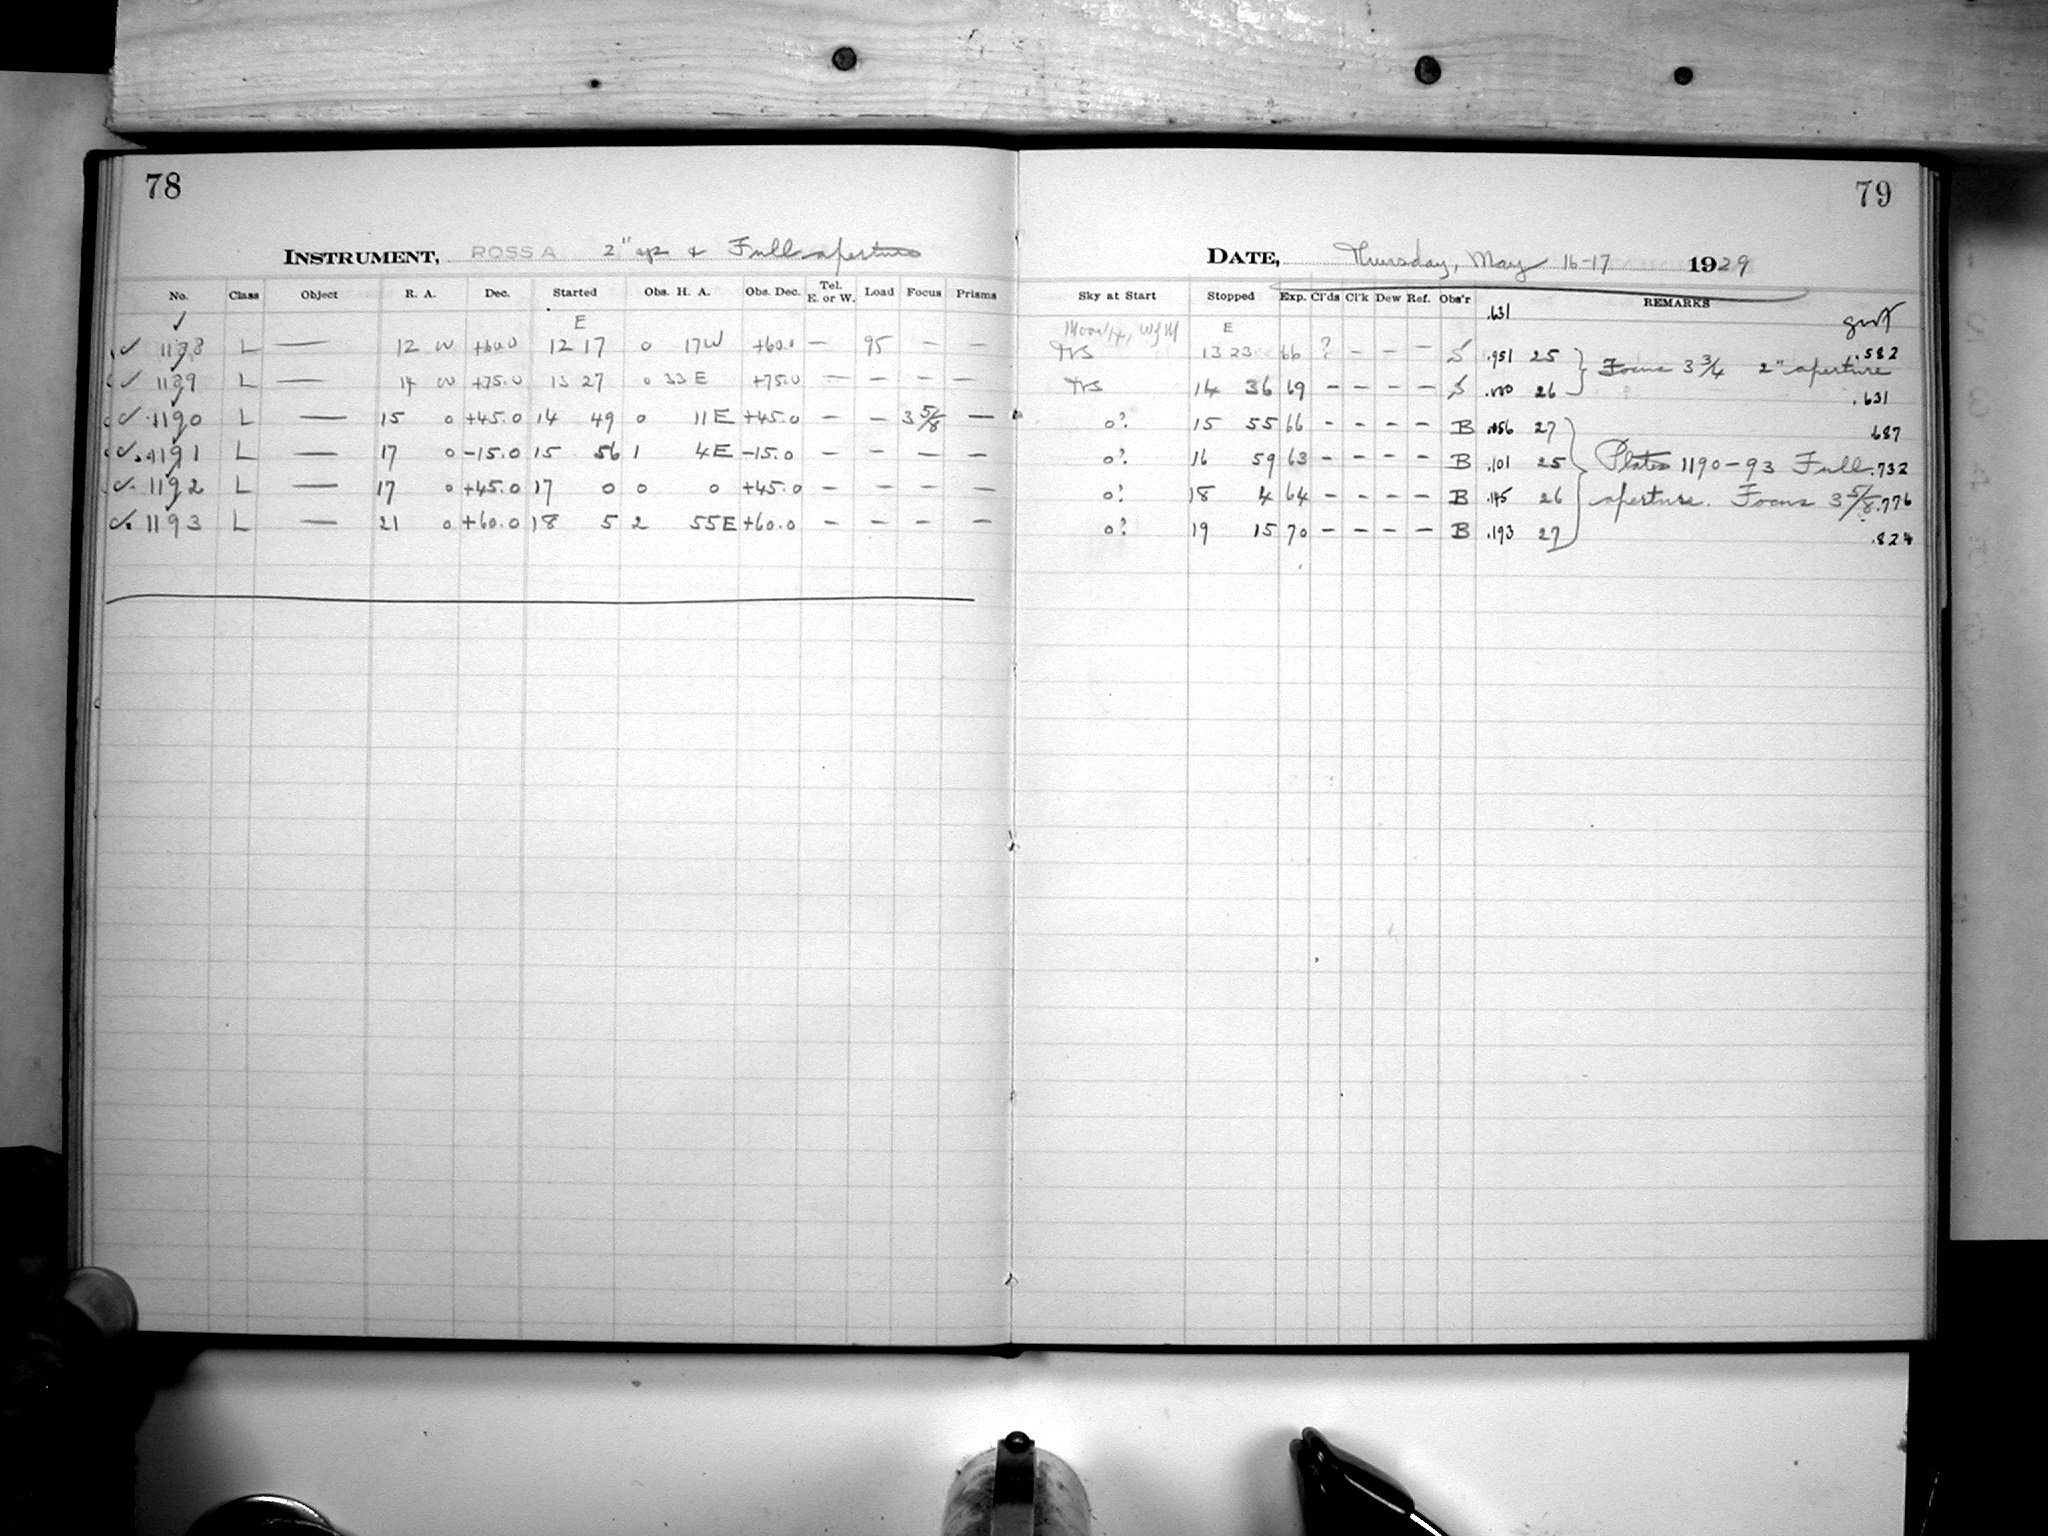 78
INSTRUMENT, ROSS A 2" ap & Full aperture
No. Class Object R. A. Dec. Started Obs. H. A. Obs. Dec. Tel. E. or W. Load Focus Prisms
E
✓ 1188 L — 12 +60.0 12 17 0 17W +60.0 — 95 — —
✓ 1189 L — 14 +75.0 13 27 0 33 E +75.0 — — — —
✓ 1190 L — 15 0 +45.0 14 49 0 11E +45.0 — — 3 5/8 —
✓ 1191 L — 17 0 -15.0 15 56 1 4E -15.0 — — — —
✓ 1192 L — 17 0 +45.0 17 0 0 0 +45.0 — — — —
✓ 1193 L — 21 0 +60.0 18 5 2 55E +60.0 — — — —
79
DATE, Thursday, May 16-17 1929
Sky at Start Stopped Exp. Cl'ds Cl'k Dew Ref. Obs'r REMARKS
.631
E
13 23 66 ? — — — S .951 25 Focus 3 3/4 2" aperture .582
14 36 69 — — — — S 26 .631
0? 15 55 66 — — — — B .056 27 .687
0? 16 59 63 — — — — B .101 25 Plates 1190-93 Full .732
0? 18 4 64 — — — — B .145 26 aperture. Focus 3 5/8 .776
0? 19 15 70 — — — — B .193 27 .824